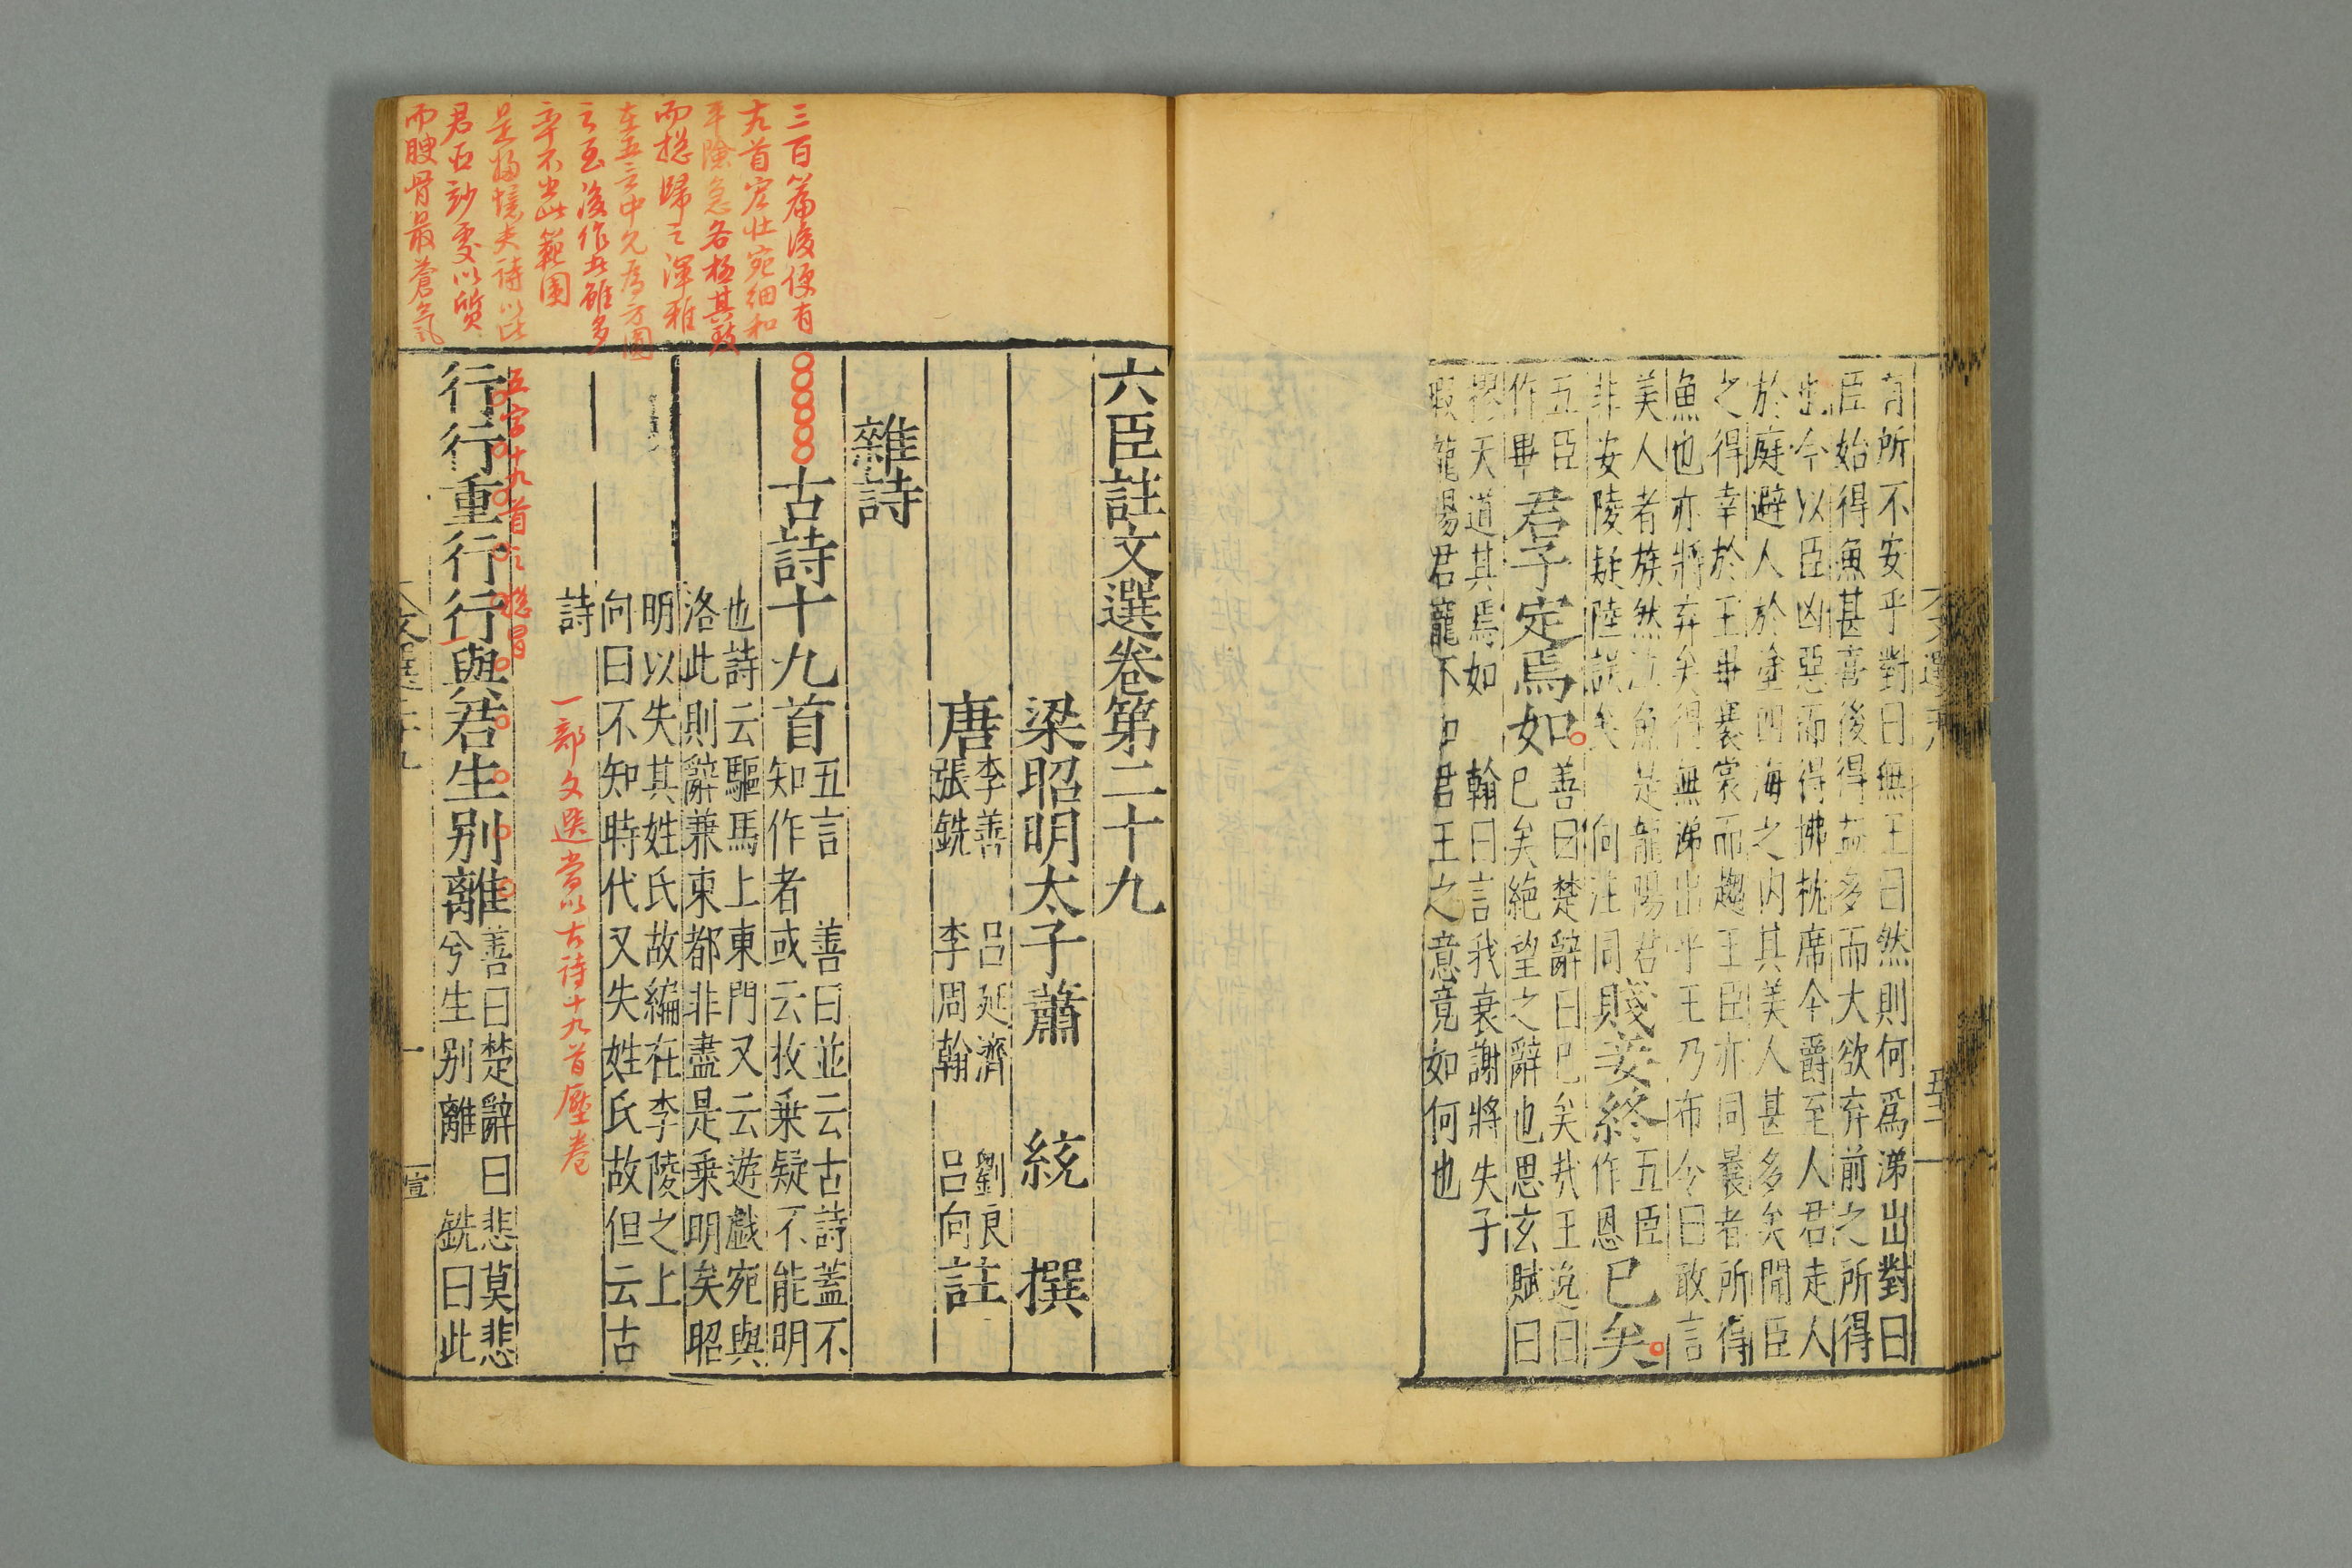 有所不安乎對曰無王曰然則何爲涕出對曰
臣始得魚甚喜後得益多而大欲弃前之所得
也今以臣凶惡而得拂枕席今爵至人君走人
於庭避人於塗四海之内其美人甚多矣聞臣
之得幸於王畢褰裳而趨王臣亦同曩者所得
魚也亦將弃矣得無涕出乎王乃布令曰敢言
美人者族然泣魚是龍陽君
非安陵疑陸誤矣 向注同
賤妾終
五臣
作恩
已矣
五臣
作畢
君子定焉如
善曰楚辭曰已矣哉王逸曰
已矣絶望之辭也思玄賦曰
天道其焉如 翰曰言我衰謝將失子
龍陽君寵不 君王之意竟如何也
六臣註文選卷第二十九
梁昭明太子蕭 統 撰
唐
李善 吕延濟 劉良
張銑 李周翰 吕向
註
雜詩
古詩十九首
五言 善曰並云古詩蓋不
知作者或云枚乗疑不能明
也詩云驅馬上東門又云遊戲宛與
洛此則辭兼東都非盡是乗明矣昭
明以失其姓氏故編在李陵之上
向曰不知時代又失姓氏故但云古
詩
行行重行行與君生別離
善曰楚辭曰悲莫悲
兮生別離 銑曰此
三百篇後便有
十九首宏壯宛細和
平險急各極其致
而總歸之渾雅
在五言中允爲方圓
之至後作者雖多
卒不出此範圍
君古
而骨最蒼氣
五字十九首之總冒
一部文選當以古詩十九首壓卷
文選二十九
一